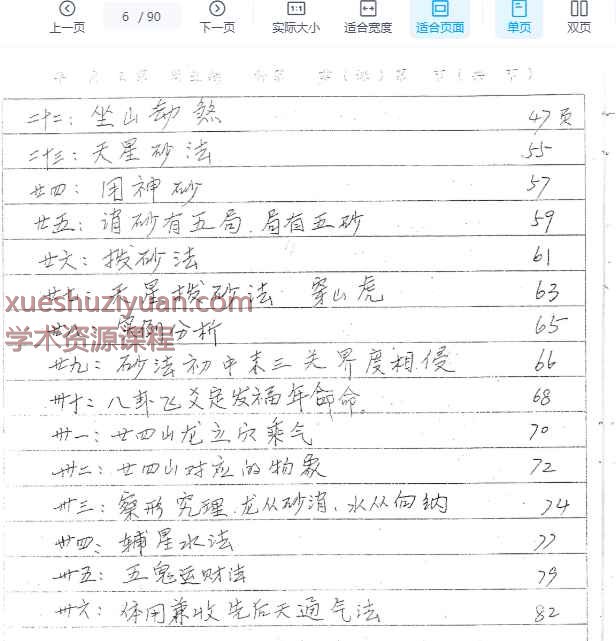 6 / 90
上一页 下一页 实际大小 适合宽度 适合页面 单页 双页
二十二：坐山劫煞 47页
二十三：天星砂法 55
廿四：用神砂 57
廿五：消砂有五局.局有五砂 59
廿六：拨砂法 61
廿七：天星拨砂法 穿山虎 63
xueshuziyuan.com
廿八：实例分析 65
学术资源课程
廿九：砂法初中末三关界度相侵 66
卅十：八卦飞爻定发福年命 68
卅一：廿四山龙立穴乘气 70
卅二：廿四山对应的物象 72
卅三：察形究理.龙从砂消、水从向纳 74
卅四、辅星水法 77
卅五：五鬼运财法 79
卅六：体用兼收先后天通气法 82